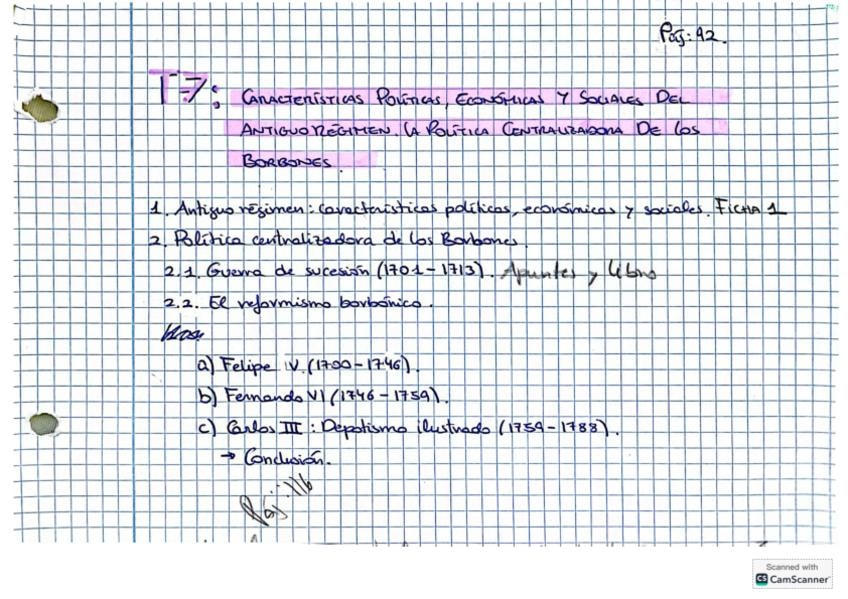 Pág: 92.
T-7: CARACTERÍSTICAS POLÍTICAS, ECONÓMICAS Y SOCIALES DEL
ANTIGUO RÉGIMEN. LA POLÍTICA CENTRALIZADORA DE LOS
BORBONES.
1. Antiguo régimen: características políticas, económicas y sociales. FICHA 1
2. Política centralizadora de los Borbones.
2.1. Guerra de sucesión (1701-1713). Apuntes y libro
2.2. El reformismo borbónico.
a) Felipe IV. (1700-1746).
b) Fernando VI (1746-1759).
c) Carlos III: Depotismo ilustrado (1759-1788).
→ Conclusión.
Pág: 116
Scanned with
CS CamScanner